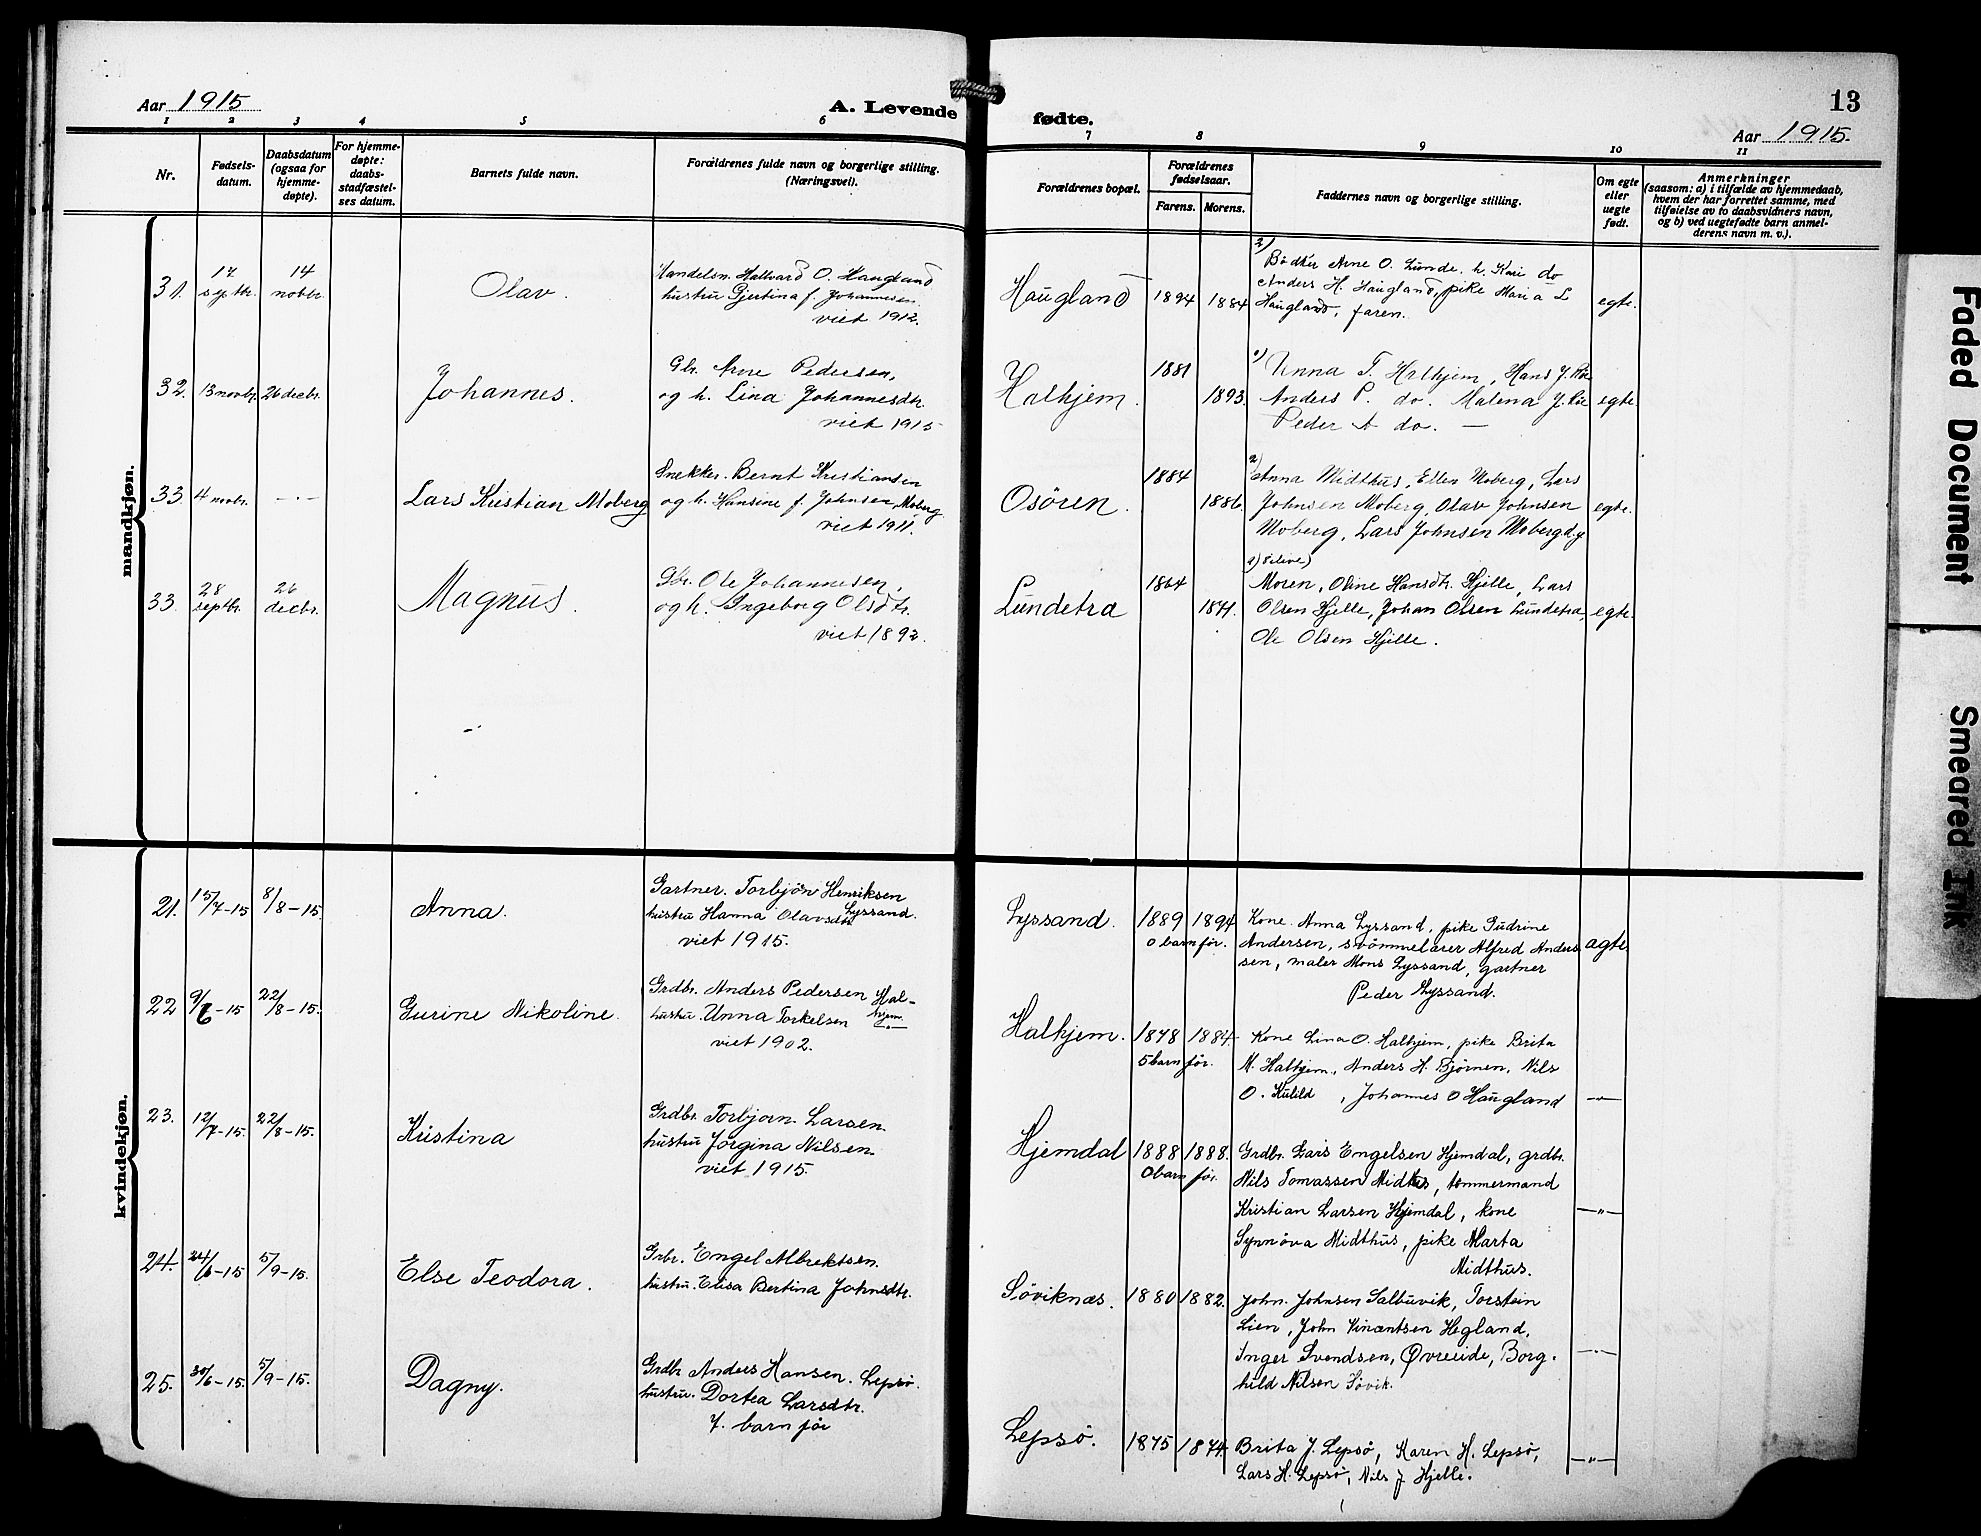 Aar 1915
A. Levende
1 2 3 4 5 6
Nr.
Fødsels-
datum.
Daabsdatum
(ogsaa for
hjemme-
døpte).
For hjemme-
døpte:
daabs-
stadfæstel-
ses datum.
Barnets fulde navn.
Forældrenes fulde navn og borgerlige stilling.
(Næringsvei).
mandkjøn.
31.
17
septbr.
14
novbr.
Olav.
Handelsm. Hallvard O. Haugland
hustru Gjertina f. Johannesen.
viet 1912.
32.
13 novbr.
26 decbr.
Johannes.
Gbr. Arne Pedersen,
og h. Lina Johannesdtr.
viet 1915
33
4 novbr.
—·—
Lars Kristian Moberg
Snekker. Bernt Kristiansen
og h. Hansine f. Johnsen, Moberg
viet 1911.
33.
28
septbr.
26
decbr.
Magnus.
Gbr. Ole Johannesen,
og h. Ingeborg Olsdtr.
viet 1892.
kvindekjøn.
21.
15/7-15
8/8-15.
Anna.
Gartner. Torbjörn Henriksen
Lyssand.
hustru Hanna Olavsdtr.
viet 1915.
22
9/6-15
22/8-15.
Gurine Nikoline.
Grdbr. Anders Pedersen Hal-
hjem.
hustru. Unna Torkelsen —"—
viet 1902.
23.
12/7-15.
22/8-15.
Kristina
Grdbr. Torbjorn Larsen
hustru Jorgina Nilsen.
viet 1915.
24.
24/6-15
5/9-15.
Else Teodora.
Grbr. Engel Albrektsen.
hustru. Elisa Bertina Johnsdtr.
25.
30/6-15.
5/9-15.
Dagny.
Grdbr Anders Hansen. Lepsö.
hustru. Dortea Larsdtr.
7. barn för
fødte.
13
Aar 1915.
7 8 9 10 11
Forældrenes bopæl.
Forældrenes
fødselsaar.
Farens. Morens.
Faddernes navn og borgerlige stilling.
Om egte
eller
uegte
født.
Anmerkninger
(saasom: a) i tilfælde av hjemmedaab,
hvem der har forrettet samme, med
tilføielse av to daabsvidners navn,
og b) ved uegtefødte barn anmel-
derens navn m. v.).
Haugland
1894 1884
Bödker Arne O. Lunde. h. Kari do
Anders H. Haugland, pike Maria L
Haugland, faren.
egte.
Halhjem.
1881
1893.
Unna T. Halhjem, Hans J. Röe
Anders P. do. Malena J. Röe
Peder A do. —
egte
Osören.
1884
1886.
2)
Anna Midthus, Ellen Moberg, Lars
Johnsen Moberg, Olav Johnsen
Moberg, Lars Johnsen Moberg d.y
egte.
Lundetra
1864
1871.
Moren, Oline Hansdtr. Hjelle, Lars
Olsen Hjelle, Johan Olsen Lundetra,
Ole Olsen Hjelle.
egte.
Lyssand.
1889 1894
0 barn för.
Kone. Anna Lyssand, pike Gudrine
Andersen, svömmelærer Alfred Anders
sen, maler Mons Lyssand, gartner
Peder Lyssand.
agte
Halhjem.
1878 1884.
5 barn för.
Kone Lina O. Halhjem, pike Brita
M. Halhjem, Anders H. Björnen, Nils
O. Kulild, Johannes O Haugland
—"—
Hjemdal
1888 1888.
0 barn för.
Grdbr. Lars Engelsen Hjemdal, grdbr.
Nils Tomassen Midthus, tømmermand
Kristian Larsen Hjemdal, kone
Synnöva Midthus, pike Marta
Midthus.
—"—
Söviknæs.
1880 1882.
John. Johnsen Salbuvik, Torstein
Lien, John Vincentsen Hegland,
Inger Svendsen, Øvreeide, Borg-
hild Nilsen Sövik.
—"—
Lepsö.
1875 1874.
Brita J. Lepsö, Karen H. Lepsö,
Lars H. Lepsö, Nils J Hjelle.
—"—
Faded Document
Smeared Ink